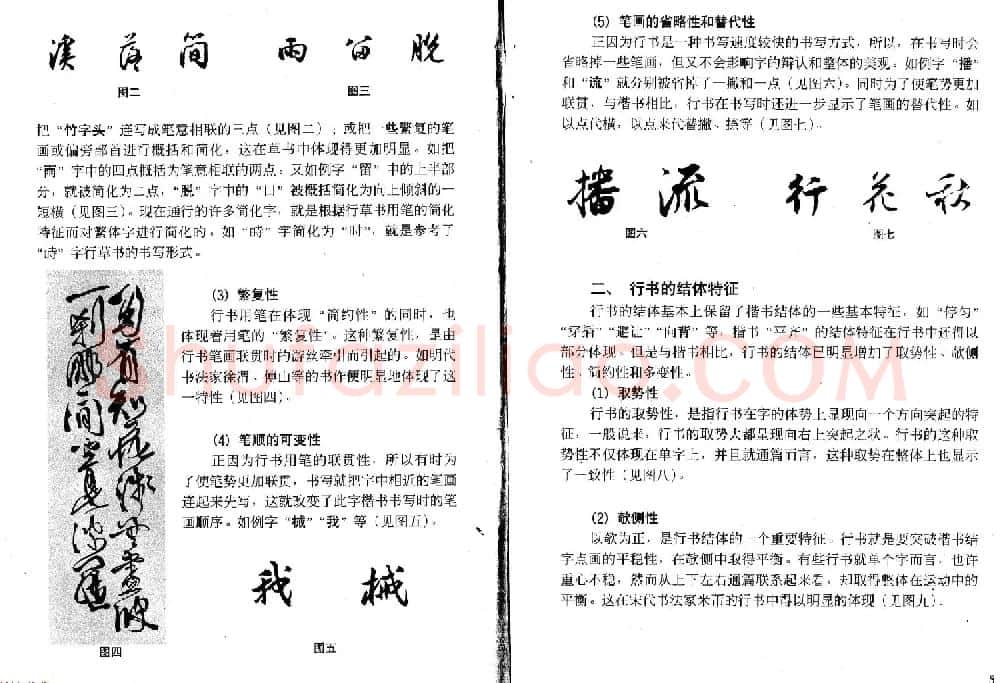 漢 落 简 雨 留 脱
图二 图三
把“竹字头”连写成笔意相联的三点（见图二）；或把一些繁复的笔
画或偏旁部首进行概括和简化，这在草书中体现得更加明显。如把
“雨”字中的四点概括为笔意相联的两点；又如例字“留”中的上半部
分，就被简化为二点，“脱”字中的“口”被概括简化为向上倾斜的一
短横（见图三）。现在通行的许多简化字，就是根据行草书用笔的简化
特征而对繁体字进行简化的。如“時”字简化为“时”，就是参考了
“時”字行草书的书写形式。
(3) 繁复性
行书用笔在体现“简约性”的同时，也
体现着用笔的“繁复性”。这种繁复性，是由
行书笔画联贯时的游丝牵引而引起的。如明代
书法家徐渭、傅山等的书作便明显地体现了这
一特性（见图四）。
(4) 笔顺的可变性
正因为行书用笔的联贯性，所以有时为
了使笔势更加联贯，书写就把字中相近的笔画
连起来先写，这就改变了此字楷书书写时的笔
画顺序。如例字“械”“我”等（见图五）。
我 械
图四
图五
(5) 笔画的省略性和替代性
正因为行书是一种书写速度较快的书写方式，所以，在书写时会
省略掉一些笔画，但又不会影响字的辩认和整体的美观。如例字“播”
和“流”就分别被省掉了一撇和一点（见图六）。同时为了使笔势更加
联贯，与楷书相比，行书在书写时还进一步显示了笔画的替代性。如
以点代横，以点来代替撇、捺等（见图七）。
播 流 行 花 秋
图六 图七
二、行书的结体特征
行书的结体基本上保留了楷书结体的一些基本特征，如“停匀”
“穿插”“避让”“向背”等，楷书“平正”的结体特征在行书中还得以
部分体现。但是与楷书相比，行书的结体已明显增加了取势性、欹侧
性、简约性和多变性。
(1) 取势性
行书的取势性，是指行书在字的体势上显现向一个方向突起的特
征，一般说来，行书的取势大都呈现向右上突起之状。行书的这种取
势性不仅体现在单字上，并且就通篇而言，这种取势在整体上也显示
了一致性（见图八）。
(2) 欹侧性
以欹为正，是行书结体的一个重要特征。行书就是要突破楷书结
字点画的平稳性，在欹侧中取得平衡。有些行书就单个字而言，也许
重心不稳，然而从上下左右通篇联系起来看，却取得整体在运动中的
平衡。这在宋代书法家米芾的行书中得以明显的体现（见图九）。
shufaziliao.COM